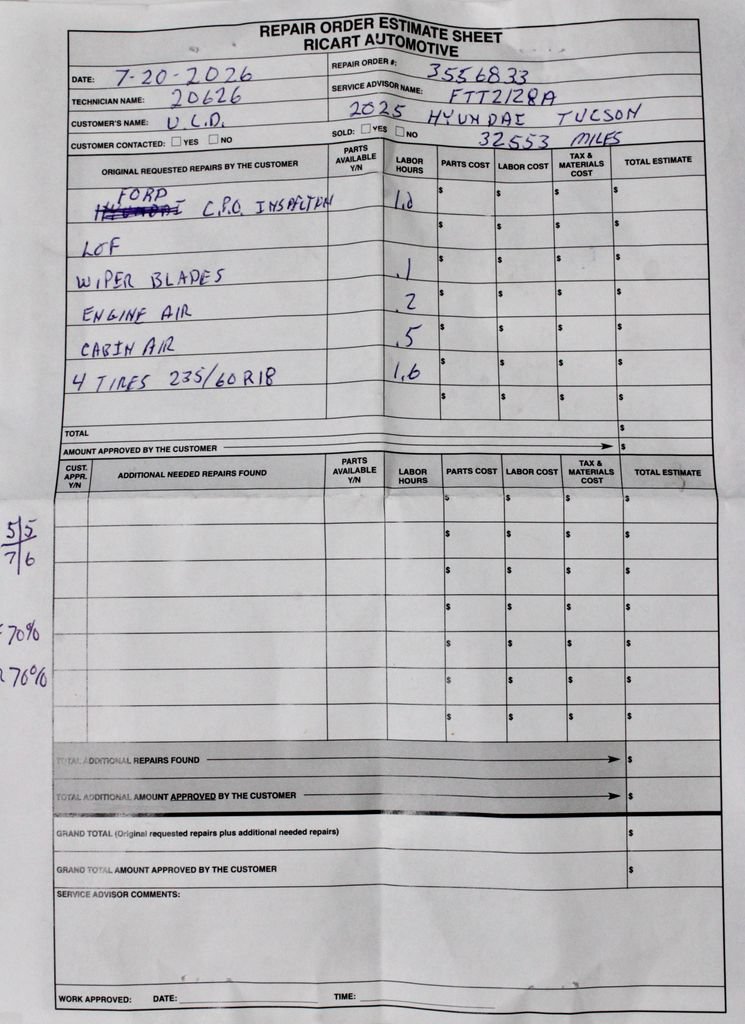 REPAIR ORDER ESTIMATE SHEET
RICART AUTOMOTIVE
DATE: 7-20-2026
REPAIR ORDER #: 3556833
TECHNICIAN NAME: 20626
SERVICE ADVISOR NAME: FTT2128A
CUSTOMER'S NAME: U.C.D.
2025 HYUNDAI TUCSON
CUSTOMER CONTACTED: YES NO
SOLD: YES NO
32553 MILES
ORIGINAL REQUESTED REPAIRS BY THE CUSTOMER PARTS AVAILABLE Y/N LABOR HOURS PARTS COST LABOR COST TAX & MATERIALS COST TOTAL ESTIMATE
FORD
HYUNDAI C.P.O. INSPECTION 1.0 $ $ $ $
LOF $ $ $ $
WIPER BLADES .1 $ $ $ $
ENGINE AIR .2 $ $ $ $
CABIN AIR .5 $ $ $ $
4 TIRES 235/60R18 1.6 $ $ $ $
$ $ $ $
TOTAL $
AMOUNT APPROVED BY THE CUSTOMER $
CUST. APPR. Y/N ADDITIONAL NEEDED REPAIRS FOUND PARTS AVAILABLE Y/N LABOR HOURS PARTS COST LABOR COST TAX & MATERIALS COST TOTAL ESTIMATE
$ $ $ $
5 5
$ $ $ $
7 6
$ $ $ $
$ $ $ $
70%
$ $ $ $
70%
$ $ $ $
$ $ $ $
TOTAL ADDITIONAL REPAIRS FOUND $
TOTAL ADDITIONAL AMOUNT APPROVED BY THE CUSTOMER $
GRAND TOTAL (Original requested repairs plus additional needed repairs) $
GRAND TOTAL AMOUNT APPROVED BY THE CUSTOMER $
SERVICE ADVISOR COMMENTS:
WORK APPROVED: DATE: TIME: